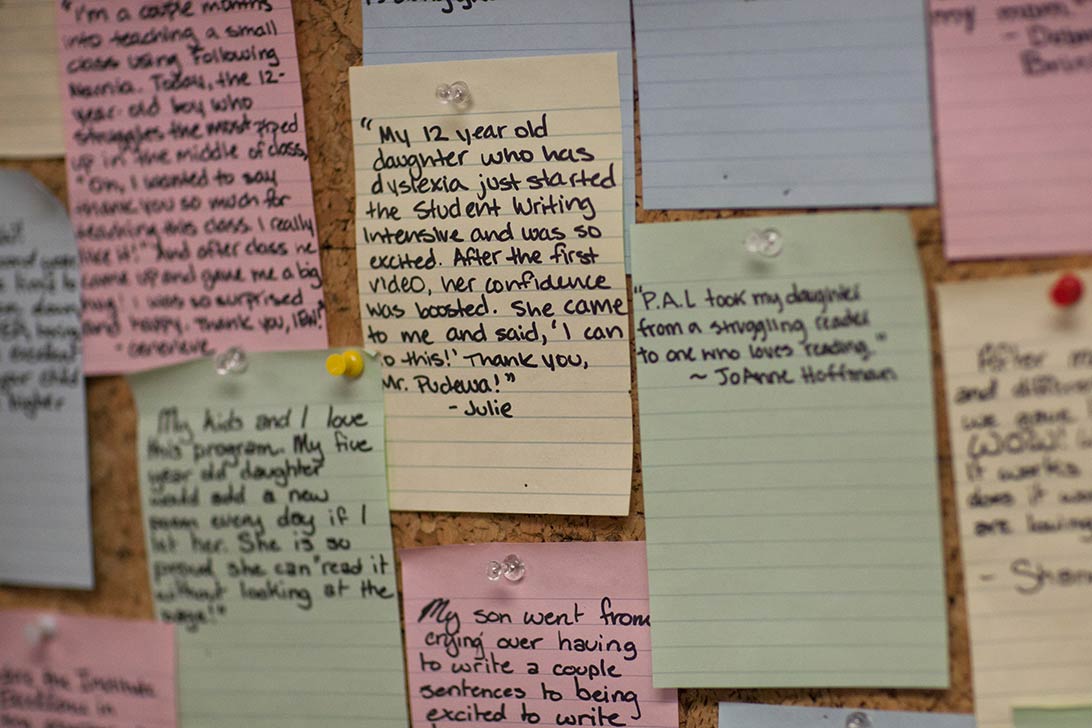 "I'm a couple months
into teaching a small
class using Following
Narnia. Today, the 12-
year-old boy who
struggles the most piped
up in the middle of class,
"Oh, I wanted to say
thank you so much for
teaching this class. I really
like it!" And after class he
came up and gave me a big
hug! I was so surprised
and happy. Thank you, IEW!"
- Genevieve
"My 12 year old
daughter who has
dyslexia just started
the Student Writing
Intensive and was so
excited. After the first
video, her confidence
was boosted. She came
to me and said, 'I can
do this!' Thank you,
Mr. Pudewa!"
- Julie
my mom."
"P.A.L took my daughter
from a struggling reader
to one who loves reading."
~ JoAnne Hoffman
My kids and I love
this program. My five
year old daughter
would add a new
poem every day if I
let her. She is so
proud she can "read it
without looking at the
page!"
My son went from
crying over having
to write a couple
sentences to being
excited to write
After
and
we gave
WOW!
it works
does it
are
- Sha
your child
higher
the Institute
Excellence in